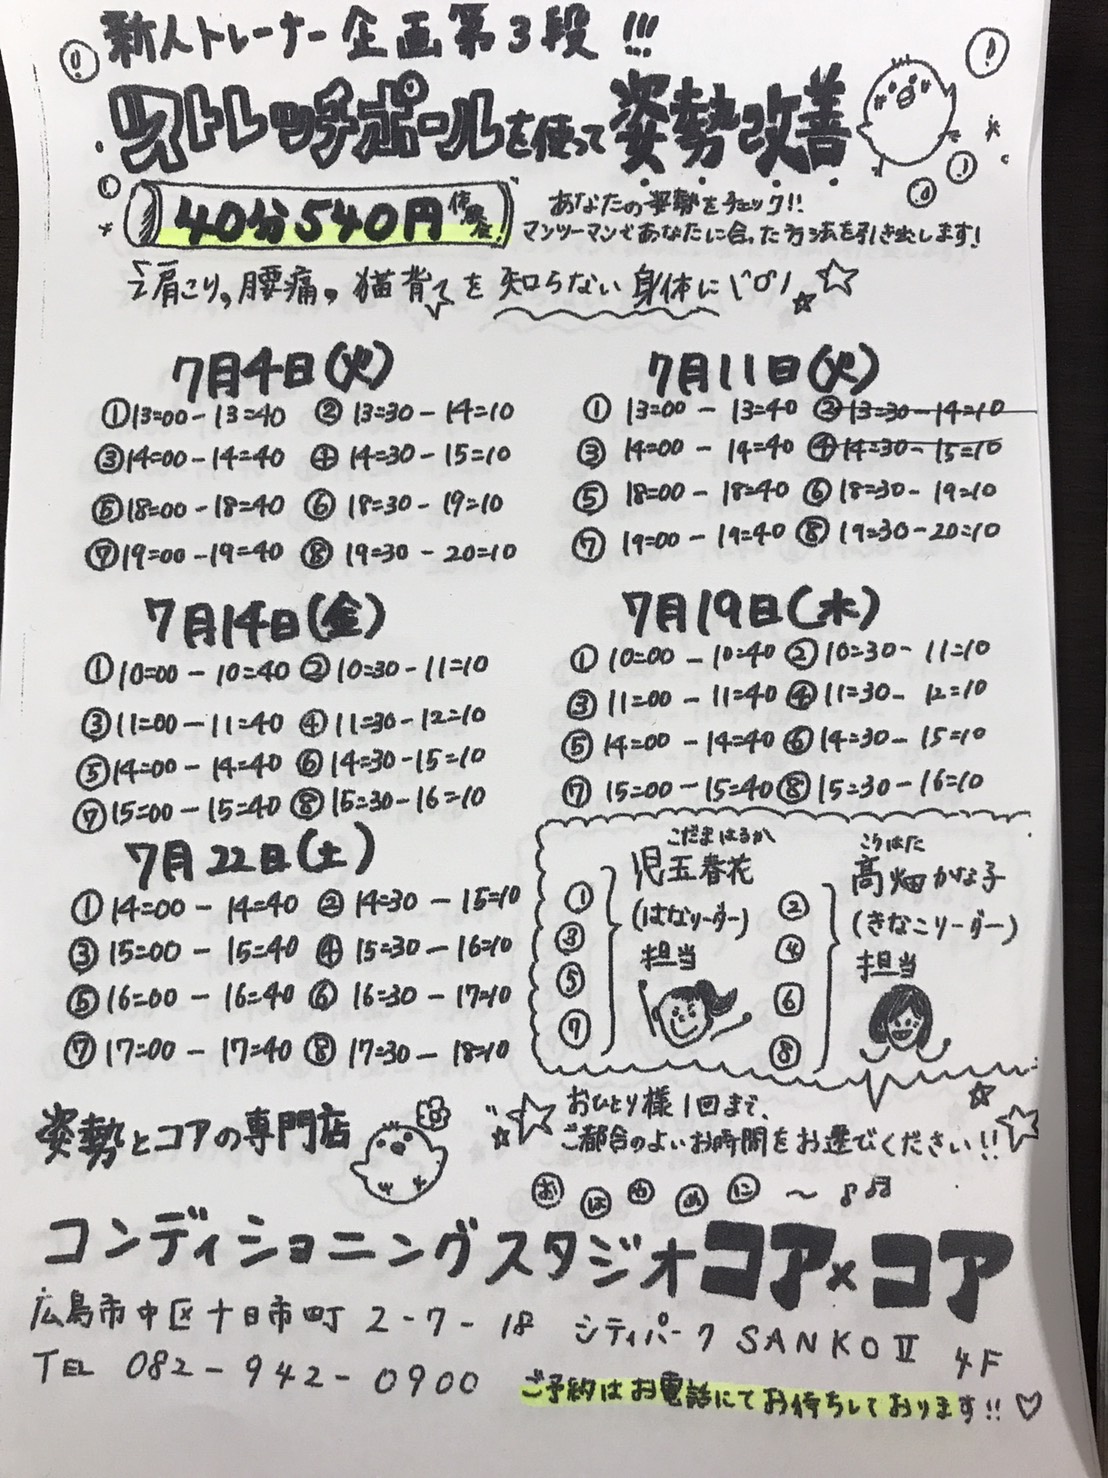 新人トレーナー企画第3段!!!
ストレッチポールを使って姿勢改善
40分540円体験会!
あなたの姿勢をチェック!!
マンツーマンであなたに合った方法を引き出します!
肩こり,腰痛,猫背を知らない身体に\(^o^)/
7月4日(火)
①13:00-13:40 ②13:30-14:10
③14:00-14:40 ④14:30-15:10
⑤18:00-18:40 ⑥18:30-19:10
⑦19:00-19:40 ⑧19:30-20:10
7月11日(火)
①13:00-13:40 ②13:30-14:10
③14:00-14:40 ④14:30-15:10
⑤18:00-18:40 ⑥18:30-19:10
⑦19:00-19:40 ⑧19:30-20:10
7月14日(金)
①10:00-10:40 ②10:30-11:10
③11:00-11:40 ④11:30-12:10
⑤14:00-14:40 ⑥14:30-15:10
⑦15:00-15:40 ⑧15:30-16:10
7月19日(水)
①10:00-10:40 ②10:30-11:10
③11:00-11:40 ④11:30-12:10
⑤14:00-14:40 ⑥14:30-15:10
⑦15:00-15:40 ⑧15:30-16:10
7月22日(土)
①14:00-14:40 ②14:30-15:10
③15:00-15:40 ④15:30-16:10
⑤16:00-16:40 ⑥16:30-17:10
⑦17:00-17:40 ⑧17:30-18:10
①
③
⑤
⑦
こだまはるか
児玉春花
(はなリーダー)
担当
②
④
⑥
⑧
こうはた
高畑かな子
(きなこリーダー)
担当
姿勢とコアの専門店
おひとり様1回まで、
ご都合のよいお時間をお選びください!!
おはやめに〜♪♬
コンディショニングスタジオコア×コア
広島市中区十日市町2-7-18 シティパークSANKOⅡ 4F
TEL 082-942-0900
ご予約はお電話にてお待ちしております!!♡